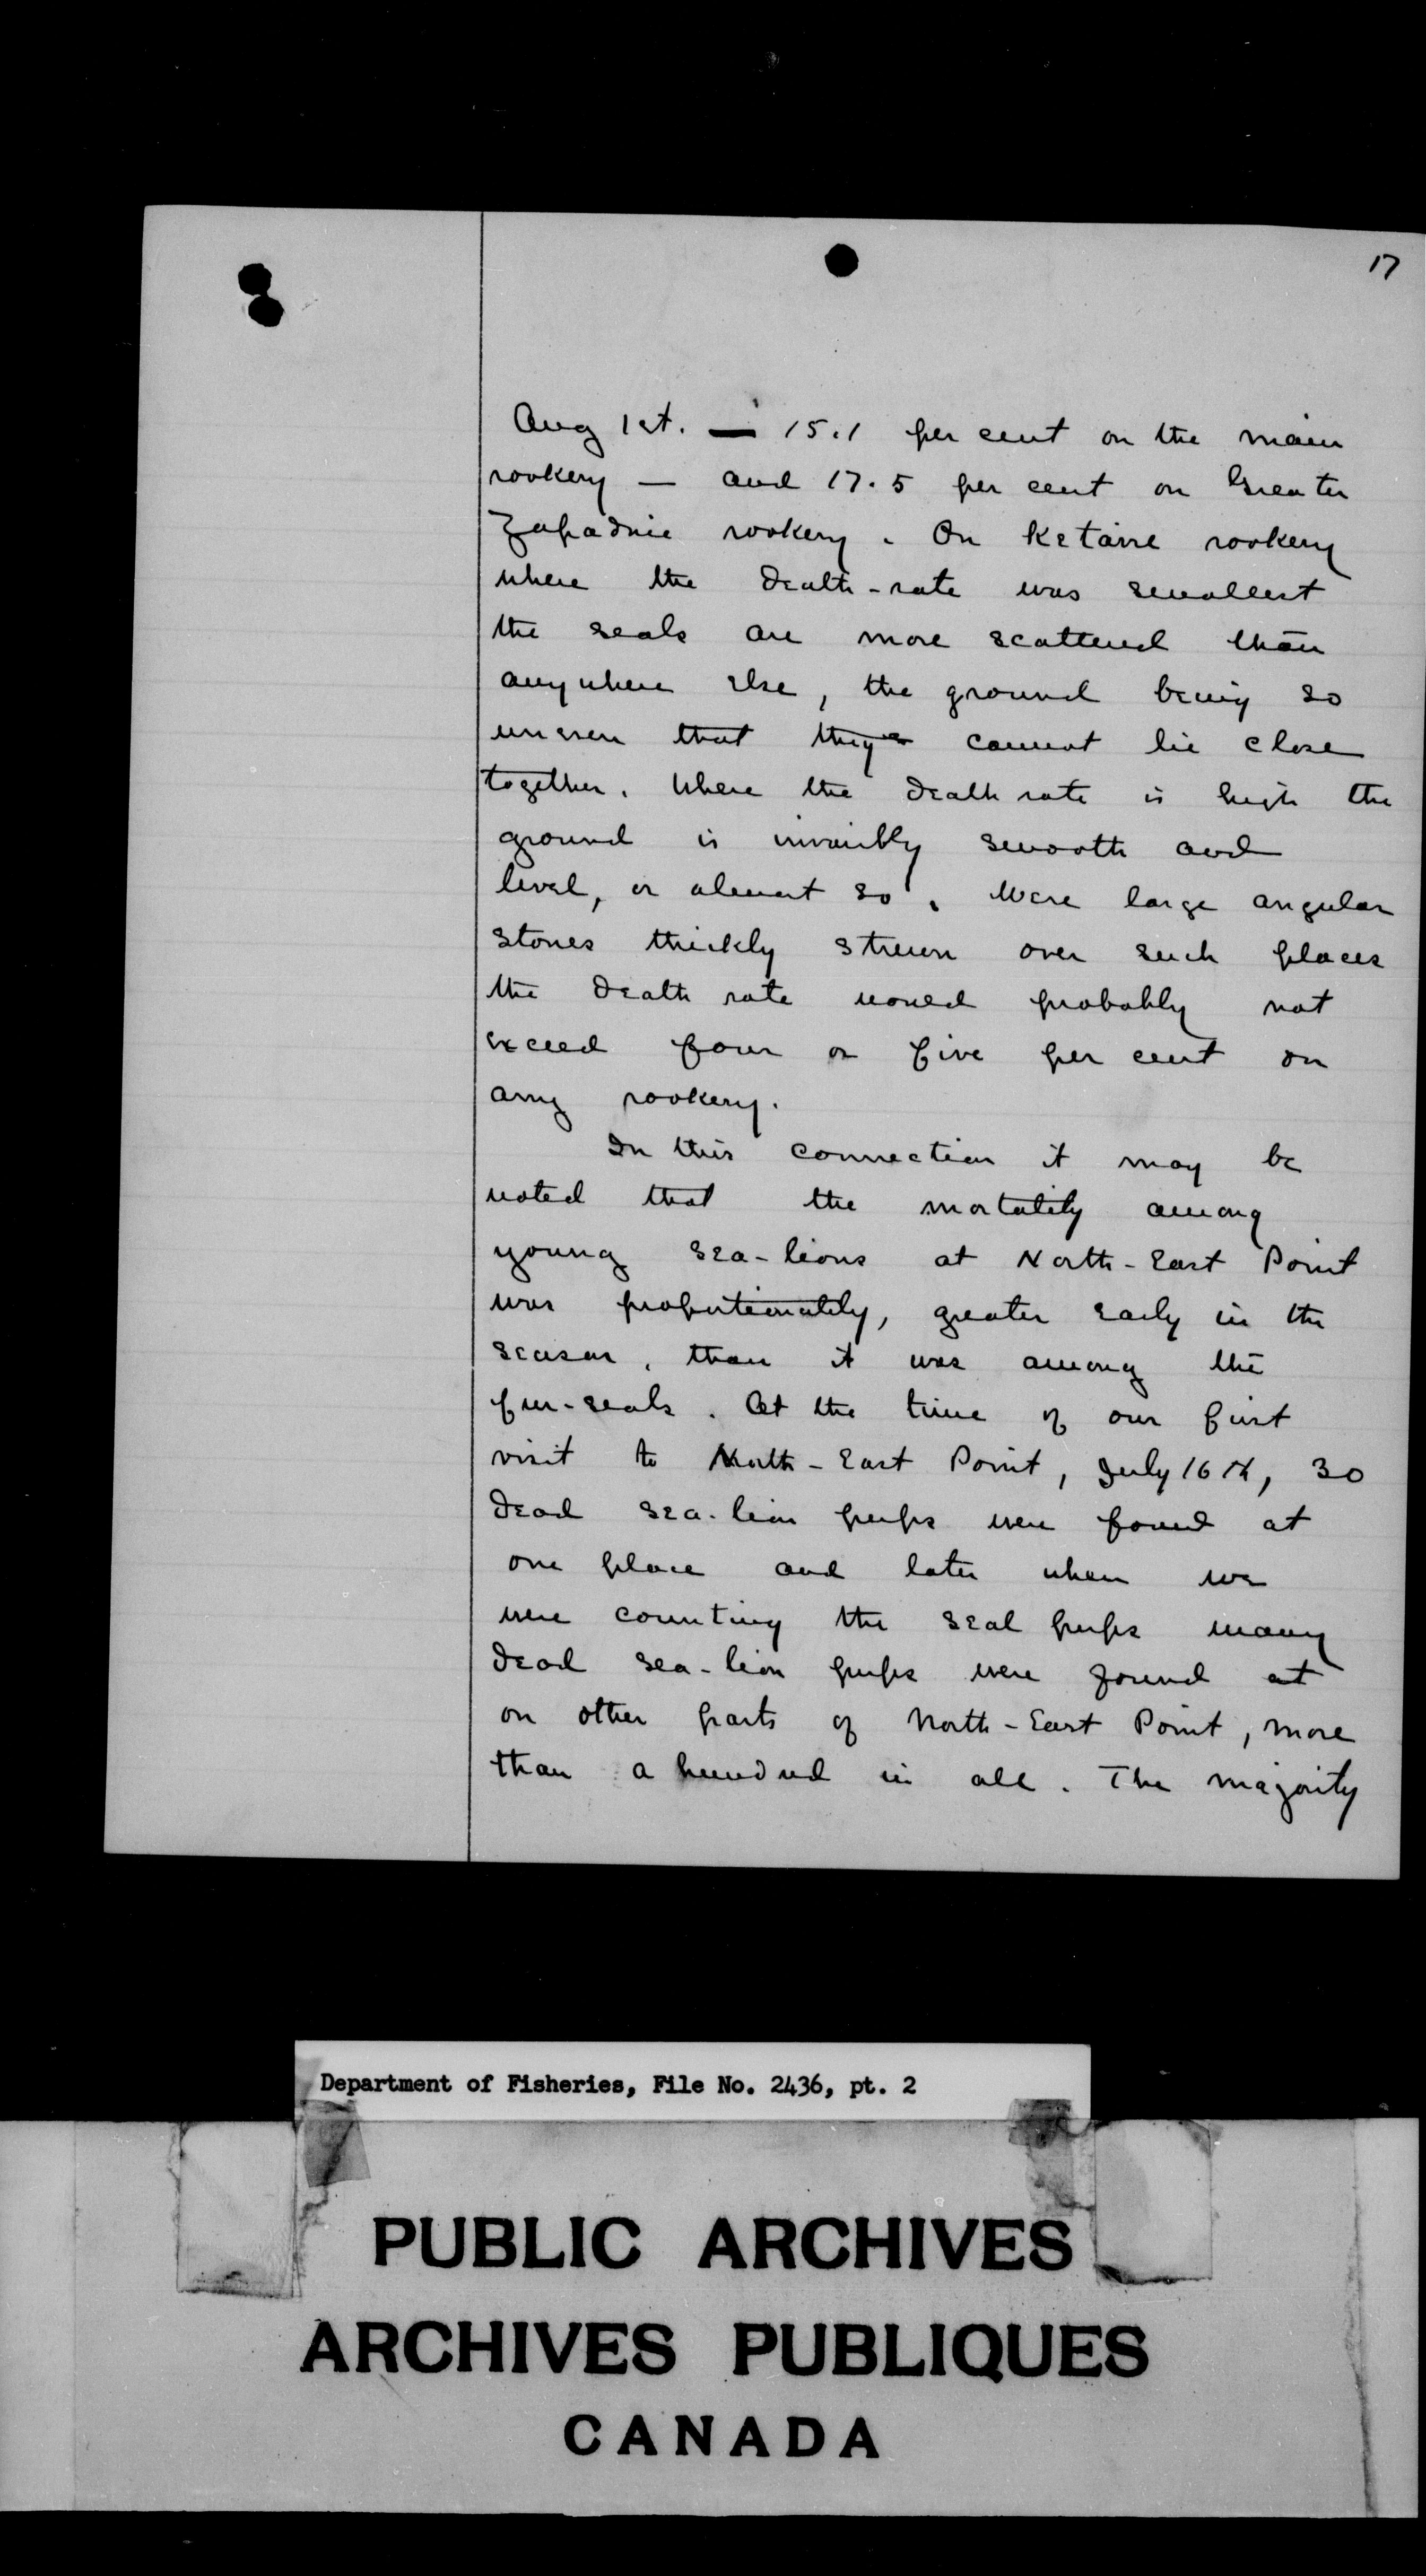 17
Aug 1st. — 15.1 per cent on the main
rookery — and 17.5 per cent on Greater
Zapadnie rookery. On Ketavie rookery
where the death-rate was smallest
the seals are more scattered than
anywhere else, the ground being so
uneven that they cannot lie close
together. Where the death rate is high the
ground is invaribly smooth and
level, or almost so. Were large angular
stones thickly strewn over such places
the death rate would probably not
exceed four or five per cent on
any rookery.
In this connection it may be
noted that the mortality among
young sea-lions at North-East Point
was proportionately, greater early in the
season, than it was among the
fur-seals. At the time of our first
visit to North-East Point, July 16th, 30
dead sea-lion pups were found at
one place and later when we
were counting the seal pups many
dead sea-lion pups were found at
on other parts of North-East Point, more
than a hundred in all. The majority
Department of Fisheries, File No. 2436, pt. 2
PUBLIC ARCHIVES
ARCHIVES PUBLIQUES
CANADA